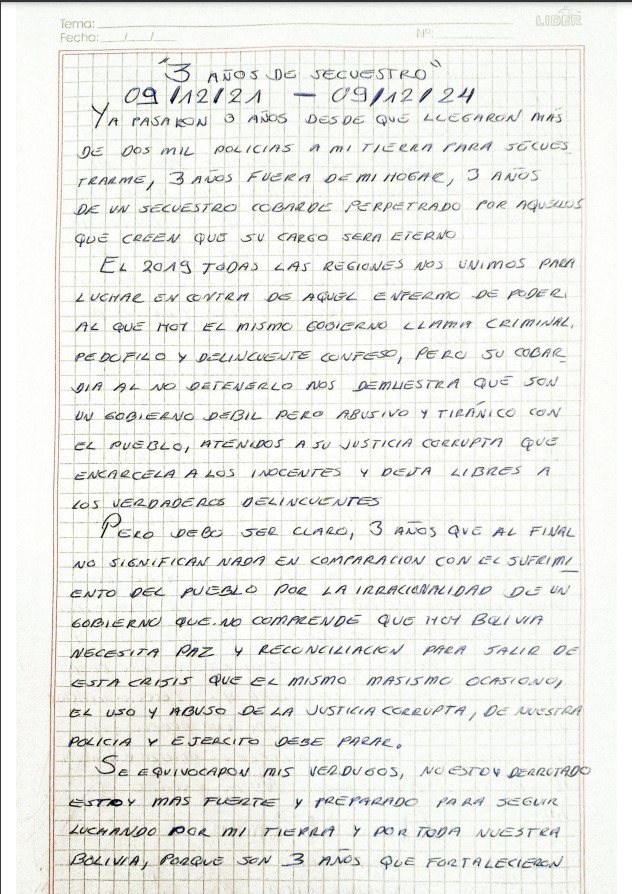 Tema:
LIDER
Fecha: / /
Nº:
"3 AÑOS DE SECUESTRO"
09/12/21 — 09/12/24
YA PASARON 3 AÑOS DESDE QUE LLEGARON MÁS
DE DOS MIL POLICIAS A MI TIERRA PARA SECUES
TRARME, 3 AÑOS FUERA DE MI HOGAR, 3 AÑOS
DE UN SECUESTRO COBARDE PERPETRADO POR AQUELLOS
QUE CREEN QUE SU CARGO SERA ETERNO
EL 2019 TODAS LAS REGIONES NOS UNIMOS PARA
LUCHAR EN CONTRA DE AQUEL ENFERMO DE PODER,
AL QUE HOY EL MISMO GOBIERNO LLAMA CRIMINAL,
PEDOFILO Y DELINCUENTE CONFESO, PERO SU COBAR_
DIA AL NO DETENERLO NOS DEMUESTRA QUE SON
UN GOBIERNO DEBIL PERO ABUSIVO Y TIRÁNICO CON
EL PUEBLO, ATENIDOS A SU JUSTICIA CORRUPTA QUE
ENCARCELA A LOS INOCENTES Y DEJA LIBRES A
LOS VERDADEROS DELINCUENTES
PERO DEBO SER CLARO, 3 AÑOS QUE AL FINAL
NO SIGNIFICAN NADA EN COMPARACION CON EL SUFRIMI_
ENTO DEL PUEBLO POR LA IRRACIONALIDAD DE UN
GOBIERNO QUE NO COMPRENDE QUE HOY BOLIVIA
NECESITA PAZ Y RECONCILIACION PARA SALIR DE
ESTA CRISIS QUE EL MISMO MASISMO OCASIONO,
EL USO Y ABUSO DE LA JUSTICIA CORRUPTA, DE NUESTRA
POLICIA Y EJERCITO DEBE PARAR.
SE EQUIVOCARON MIS VERDUGOS, NO ESTOY DERROTADO
ESTOY MAS FUERTE Y PREPARADO PARA SEGUIR
LUCHANDO POR MI TIERRA Y POR TODA NUESTRA
BOLIVIA, PORQUE SON 3 AÑOS QUE FORTALECIERON